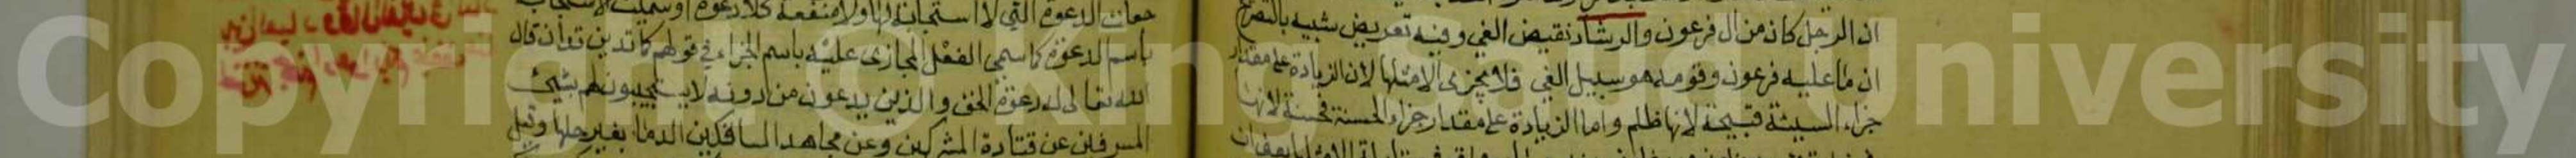 ان الرجل كان من ال فرعون والرشاد نقيض الغي وفيه تعريض شبيه بالتصريح
ان ما عليه فرعون وقومه هو سبيل الغي فلا يجزى الا مثلها لان الزيادة على مقدار
جزاء السيئة قبيحة لانها ظلم واما الزيادة على مقدار جزاء الحسنة فحسنة لانها
جعلت الدعوة التي لا استجابة لها ولا منفعة كلا دعوة او سميت الاستجابة
باسم الدعوة كما سمى الفعل المجازى عليه باسم الجزاء في قولهم كما تدين تدان قال
الله تعالى له دعوة الحق والذين يدعون من دونه لا يستجيبون لهم بشيئ
المسرفين عن قتادة المشركين وعن مجاهد السافكين الدماء بغير حلها وقيل
Copyright © King Saud University